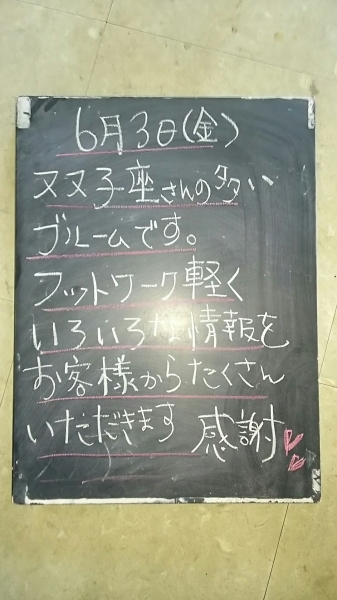 6月3日(金)
ヌヌ子座さんの多い
ブルームです。
フットワーク軽く
いろいろな情報を
お客様からたくさん
いただきます 感謝